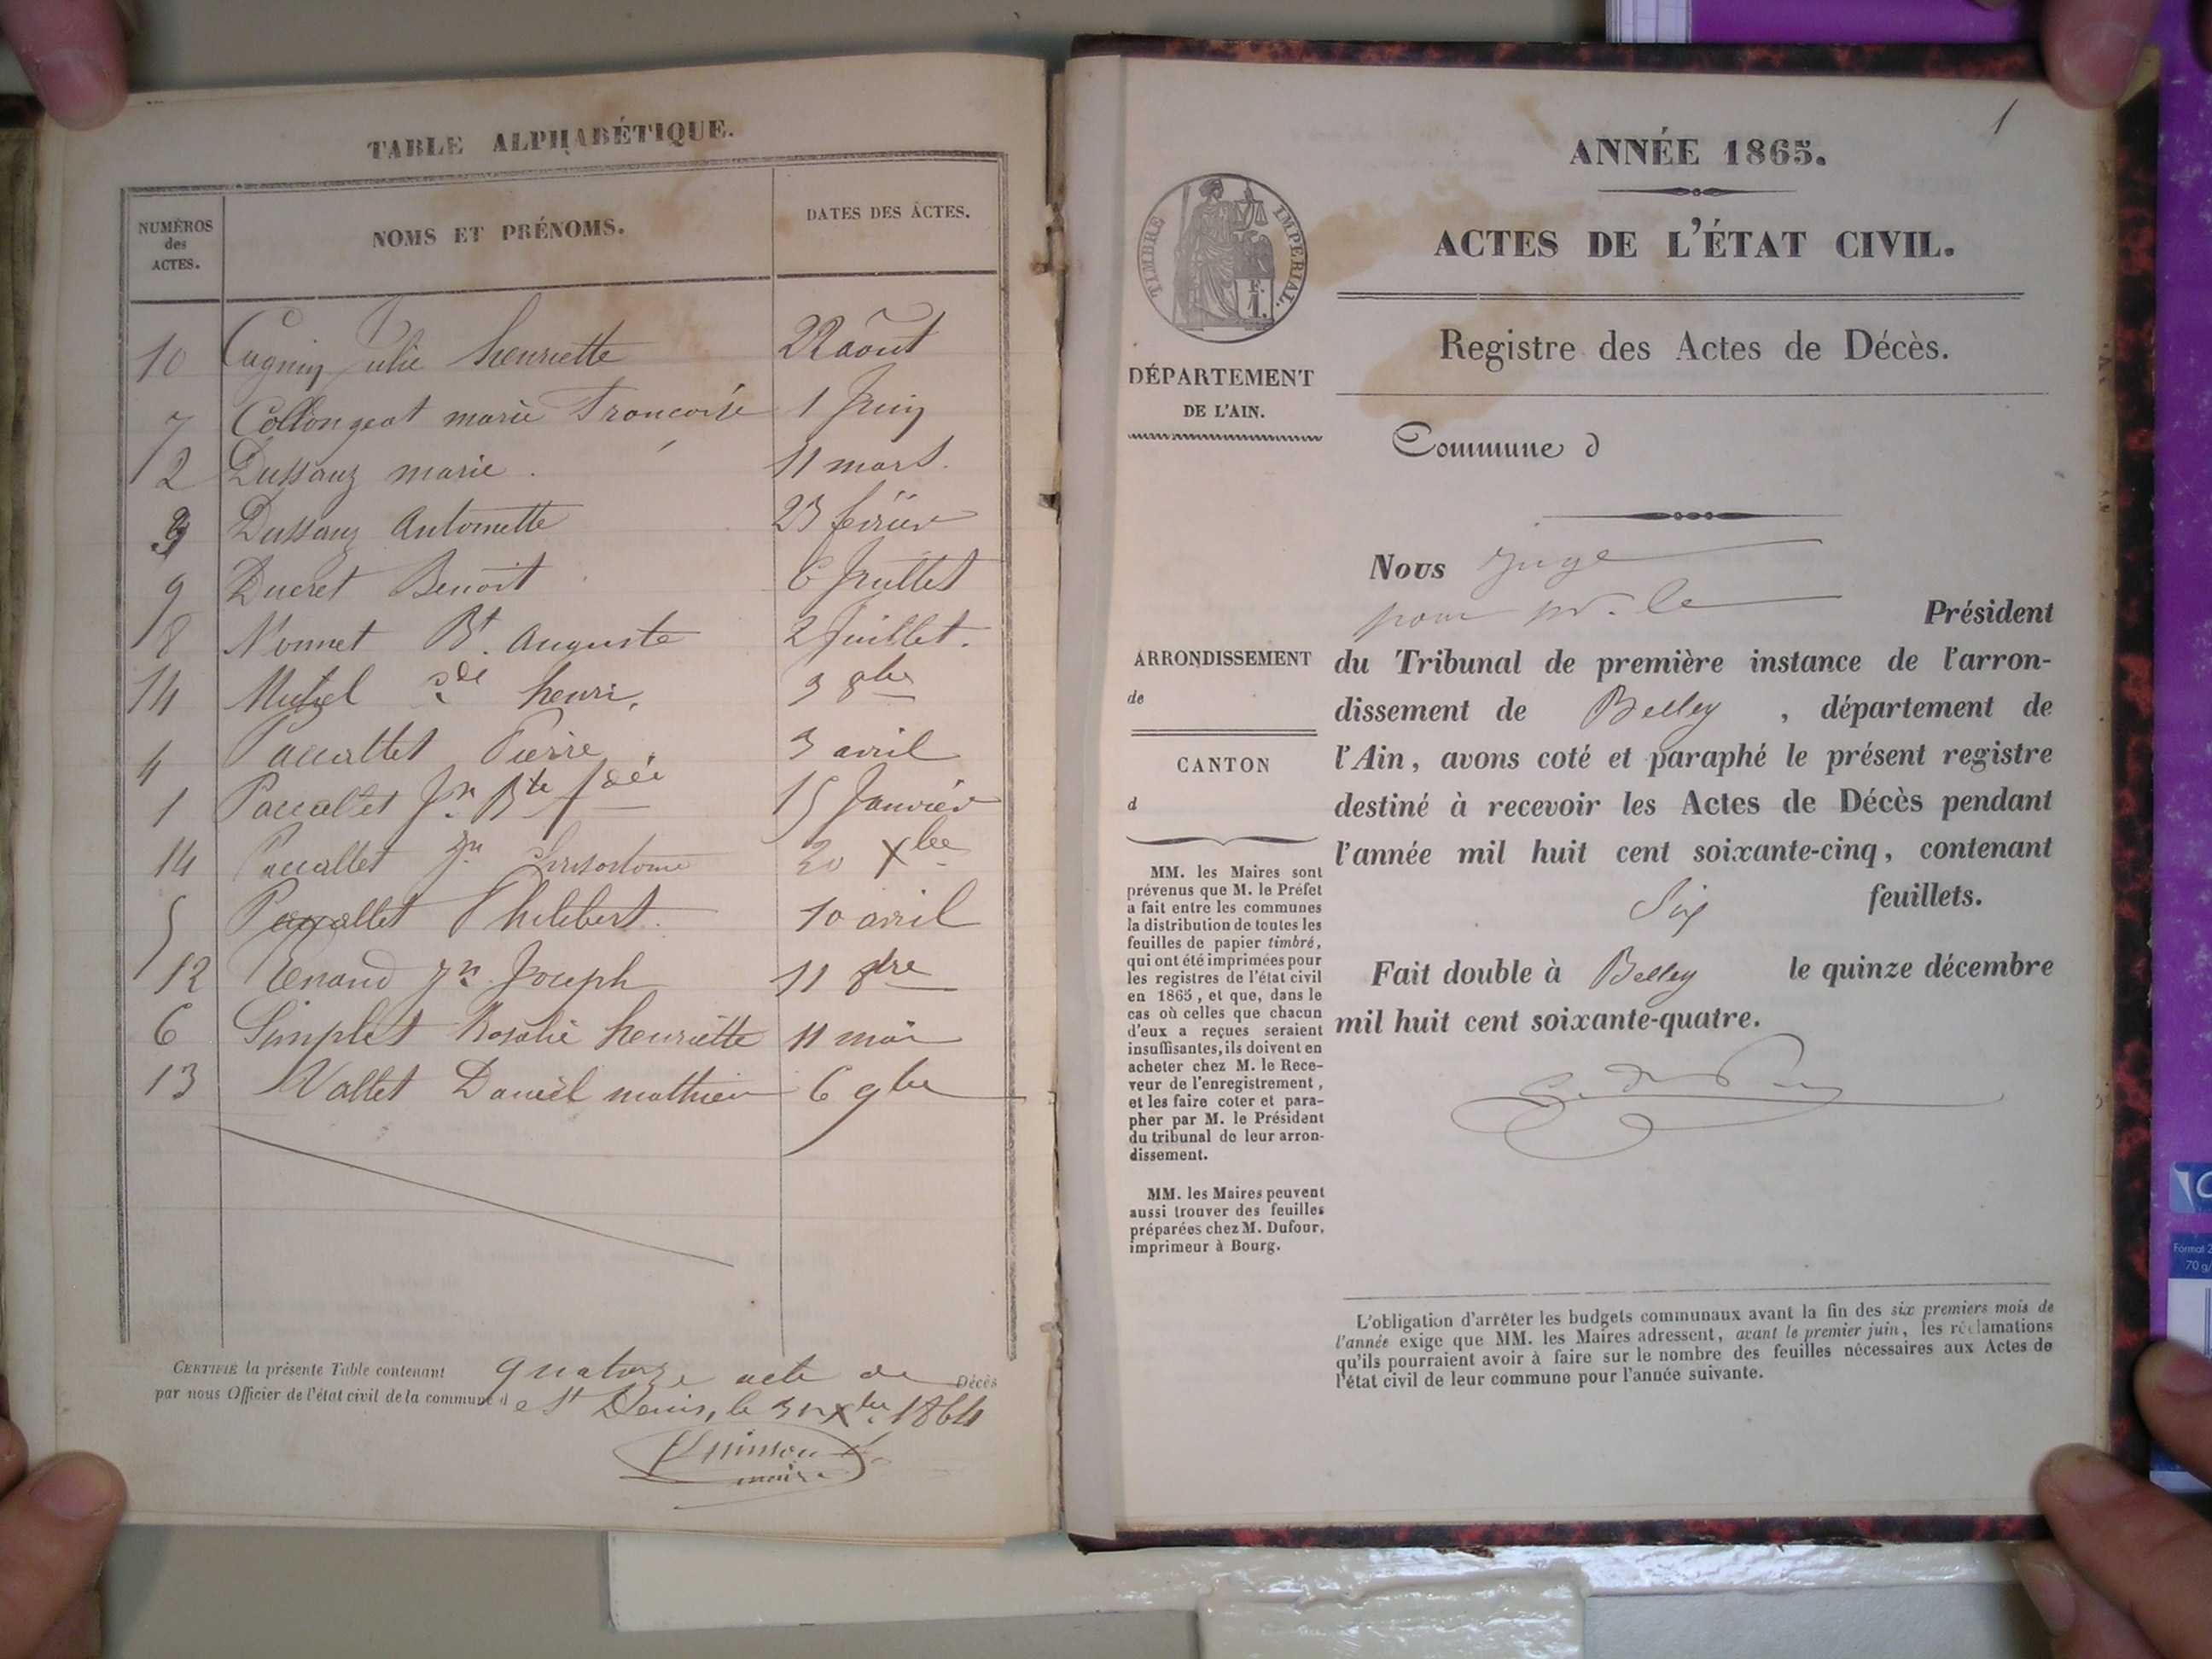 TABLE ALPHABÉTIQUE.
NUMÉROS
des
ACTES.
NOMS ET PRÉNOMS.
DATES DES ACTES.
10 Cugnin Julie henriette 22 aout
7 Collongeat marie Francoise 1 Juin
2 Dussauz marie. 11 mars.
3 Dussauz Antoinette 23 février
9 Ducret Benoit 6 Juillet
8 Monnet Bt. Auguste 2 Juillet.
14 henri, 3 8bre
4 Paccallet Pierre 3 avril
1 Paccallet Jn Bte 15 Janvier
14 Paccallet Jn Crisostome 20 Xbre
5 Paccallet Philibert. 10 avril
12 Renand Jn Joseph 11 8bre
6 Simplet Rosalie henriette 11 mai
13 Vallet Daniel mathieu 6 9bre
CERTIFIÉ la présente Table contenant quatorze acte de Décès
par nous Officier de l'état civil de la commune d e St Denis, le 31 Xbre 1864
maire
1
ANNÉE 1865.
ACTES DE L'ÉTAT CIVIL.
Registre des Actes de Décès.
TIMBRE IMPERIAL.
F.
1.
DÉPARTEMENT
DE L'AIN.
Commune d
Nous Juge
pour Mr. le Président
du Tribunal de première instance de l'arron-
dissement de Belley, département de
l'Ain, avons coté et paraphé le présent registre
destiné à recevoir les Actes de Décès pendant
l'année mil huit cent soixante-cinq, contenant
Six feuillets.
Fait double à Belley le quinze décembre
mil huit cent soixante-quatre.
ARRONDISSEMENT
de
CANTON
d
MM. les Maires sont
prévenus que M. le Préfet
a fait entre les communes
la distribution de toutes les
feuilles de papier timbré,
qui ont été imprimées pour
les registres de l'état civil
en 1865, et que, dans le
cas où celles que chacun
d'eux a reçues seraient
insuffisantes, ils doivent en
acheter chez M. le Rece-
veur de l'enregistrement,
et les faire coter et para-
pher par M. le Président
du tribunal de leur arron-
dissement.
MM. les Maires peuvent
aussi trouver des feuilles
préparées chez M. Dufour,
imprimeur à Bourg.
L'obligation d'arrêter les budgets communaux avant la fin des six premiers mois de
l'année exige que MM. les Maires adressent, avant le premier juin, les réclamations
qu'ils pourraient avoir à faire sur le nombre des feuilles nécessaires aux Actes de
l'état civil de leur commune pour l'année suivante.
Format 2
70 g/